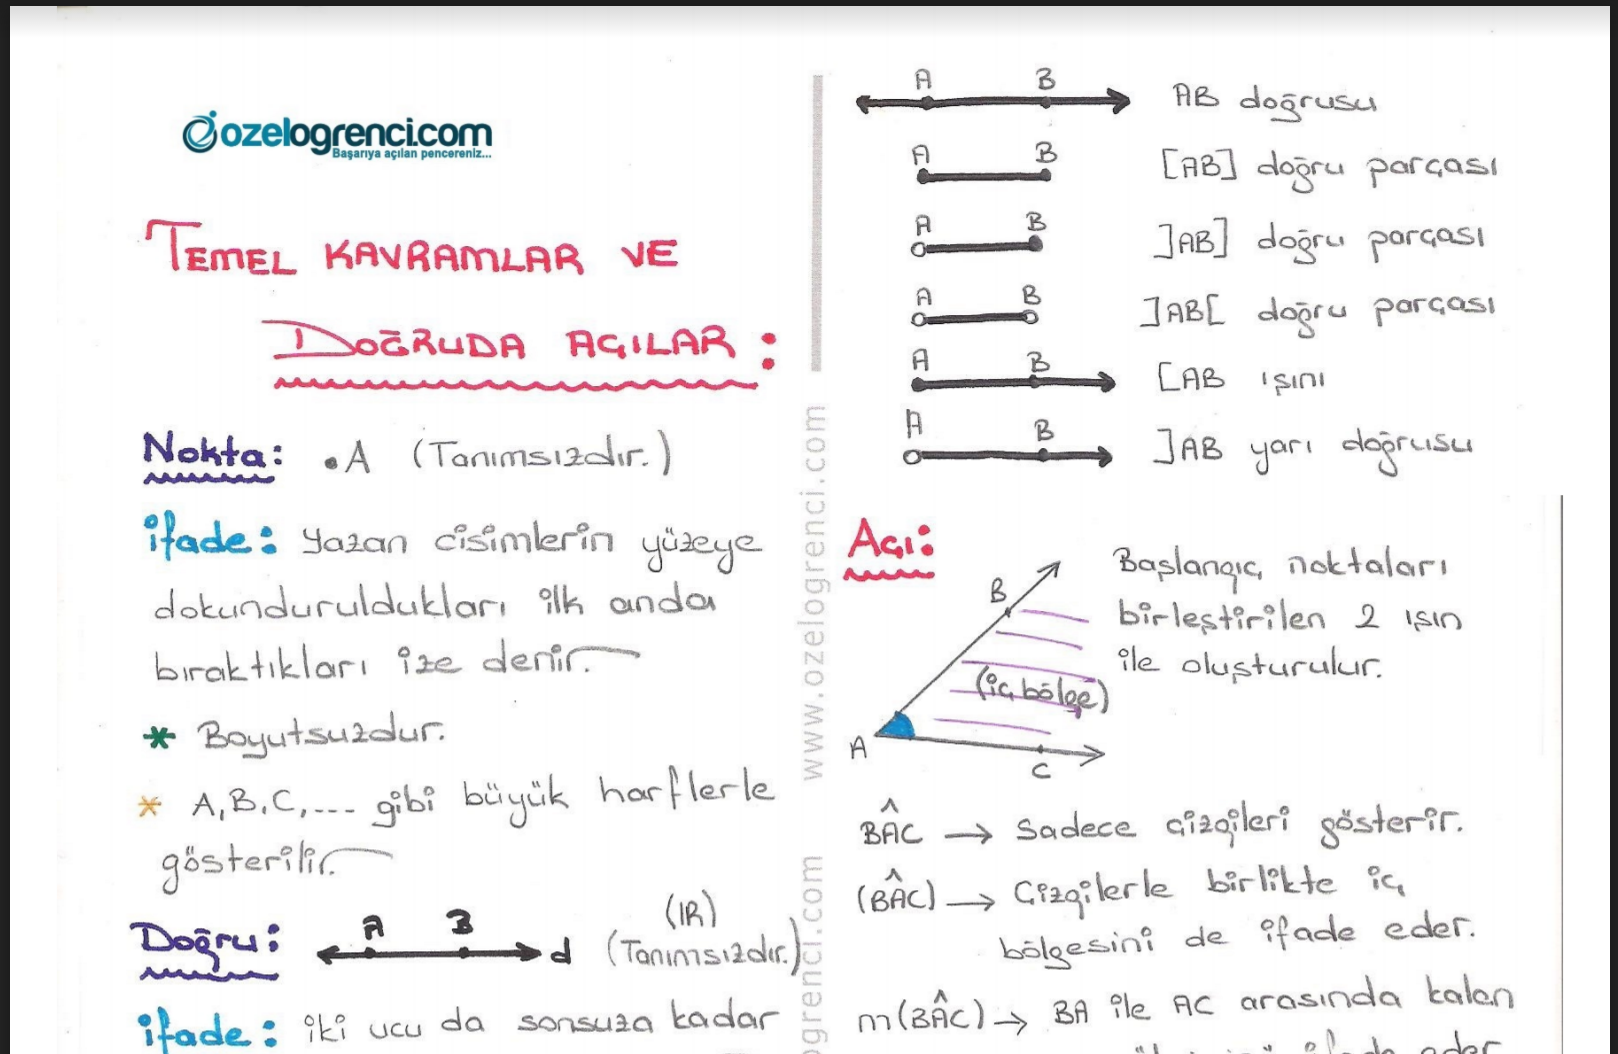 ozelogrenci.com
Başarıya açılan pencereniz...
TEMEL KAVRAMLAR VE
DOĞRUDA AÇILAR :
Nokta: .A (Tanımsızdır.)
ifade: Yazan cisimlerin yüzeye
dokunduruldukları ilk anda
bıraktıkları ize denir.
* Boyutsuzdur.
* A,B,C,... gibi büyük harflerle
gösterilir.
Doğru: A B d (IR)
(Tanımsızdır.)
ifade: iki ucu da sonsuza kadar
www.ozelogrenci.com
ogrenci.com
A B AB doğrusu
A B [AB] doğru parçası
A B ]AB] doğru parçası
A B ]AB[ doğru parçası
A B [AB ışını
A B ]AB yarı doğrusu
Açı:
Başlangıç noktaları
birleştirilen 2 ışın
ile oluşturulur.
B
(iç bölge)
A
C
BÂC → Sadece çizgileri gösterir.
(BÂC) → Çizgilerle birlikte iç
bölgesini de ifade eder.
m(BÂC) → BA ile AC arasında kalan